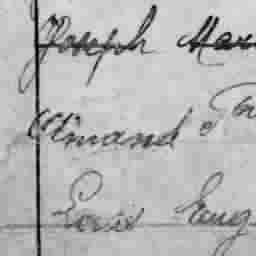 Joseph Mar
Armand
Louis Eug